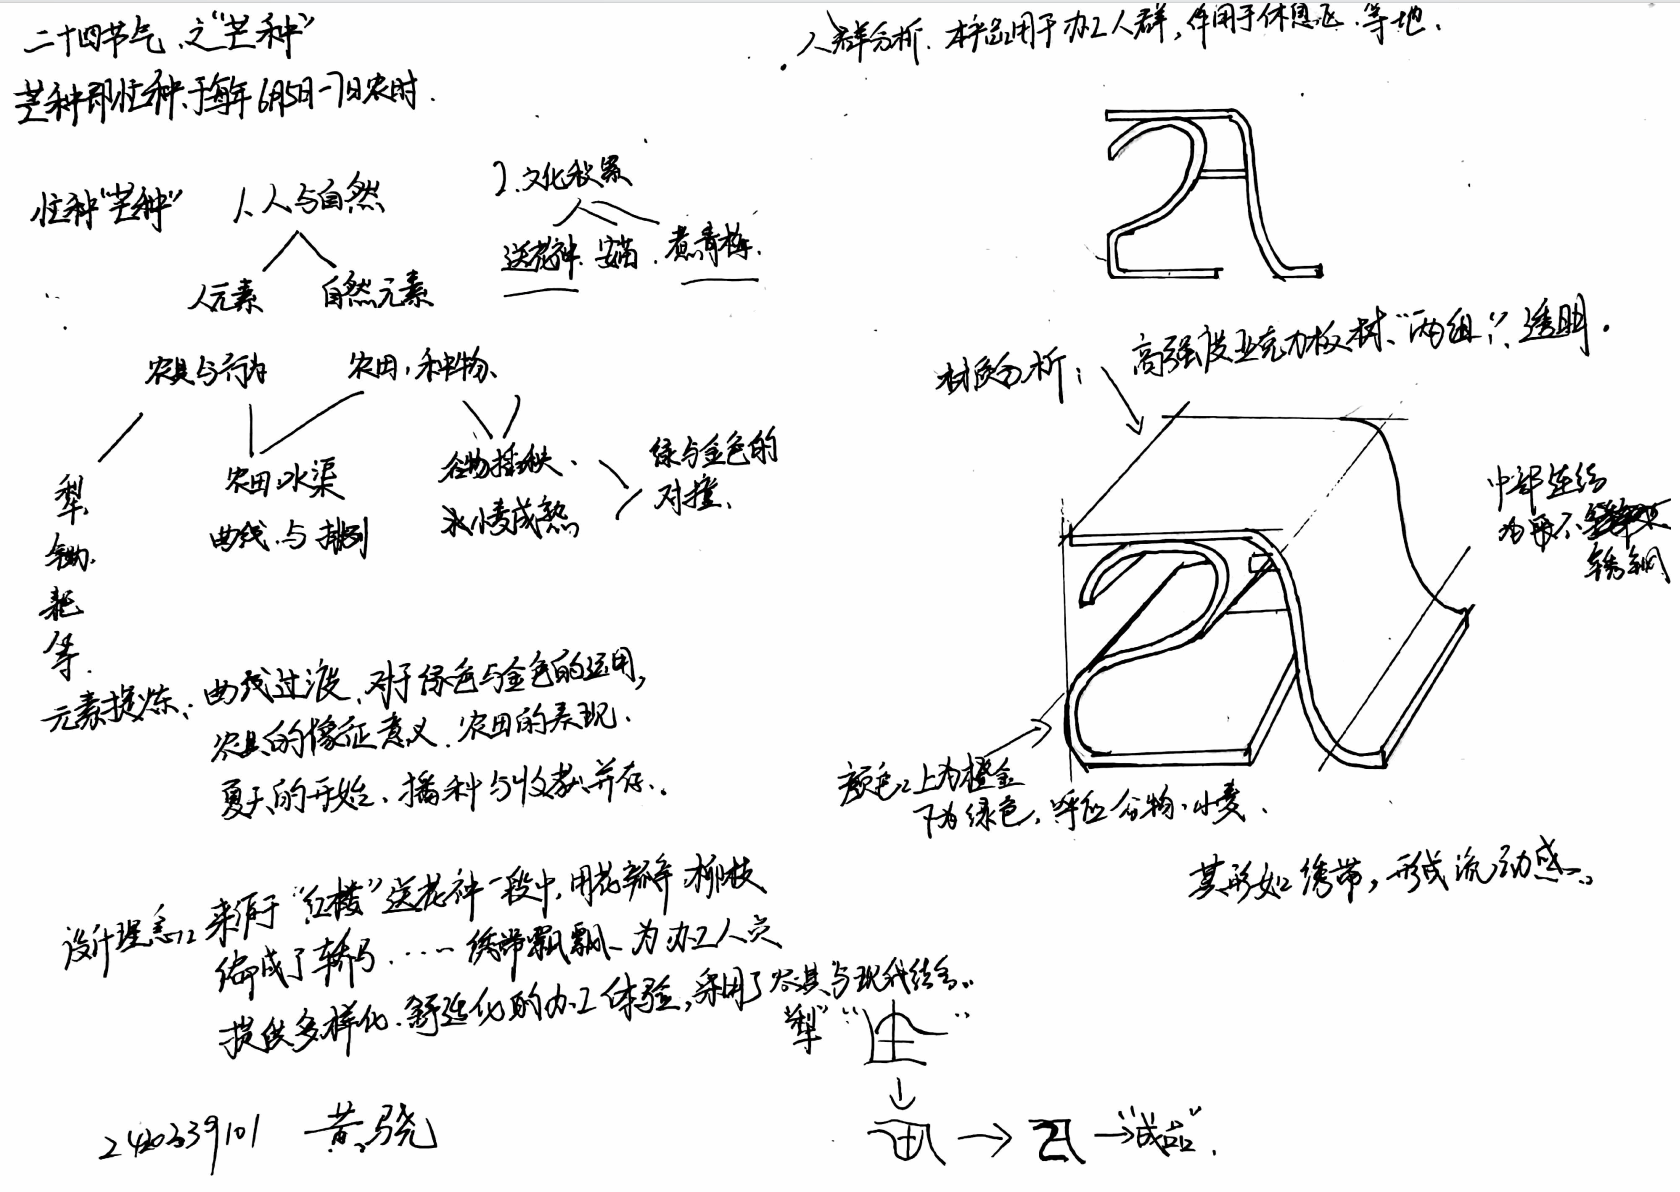 二十四节气之“芒种”
芒种即忙种于每年6月5日-7日农时.
忙种“芒种”
1、人与自然
人元素 自然元素
2.文化积累
送花神. 安苗. 煮青梅.
农具与行为 农田,种物、
犁.
锄.
耙
等.
农田水渠
曲线.与排列
谷物插秧、
冰小麦成熟
绿与金色的
对撞.
元素提炼: 曲线过渡、对于绿色与金色的运用,
农具的像征意义.农田的表现.
夏天的开始、播种与收获并存..
设计理念: 来源于“红楼”送花神一段中,用花瓣 柳枝
编成了轿马……绣带飘飘、为办工人员
提供多样化.舒适化的办工体验,采用了农具与现代结合..
“犁”
→ → “成品”.
2420339101 黄骁
人群分析. 本产品用于办工人群,作用于休息区.等地.
材质分析: 高强度亚克力板材、“两组”、透明.
中部连结
为
不锈钢
颜色:上为橙金
下为绿色,呼应谷物·小麦.
其形如绣带,形成流动感..